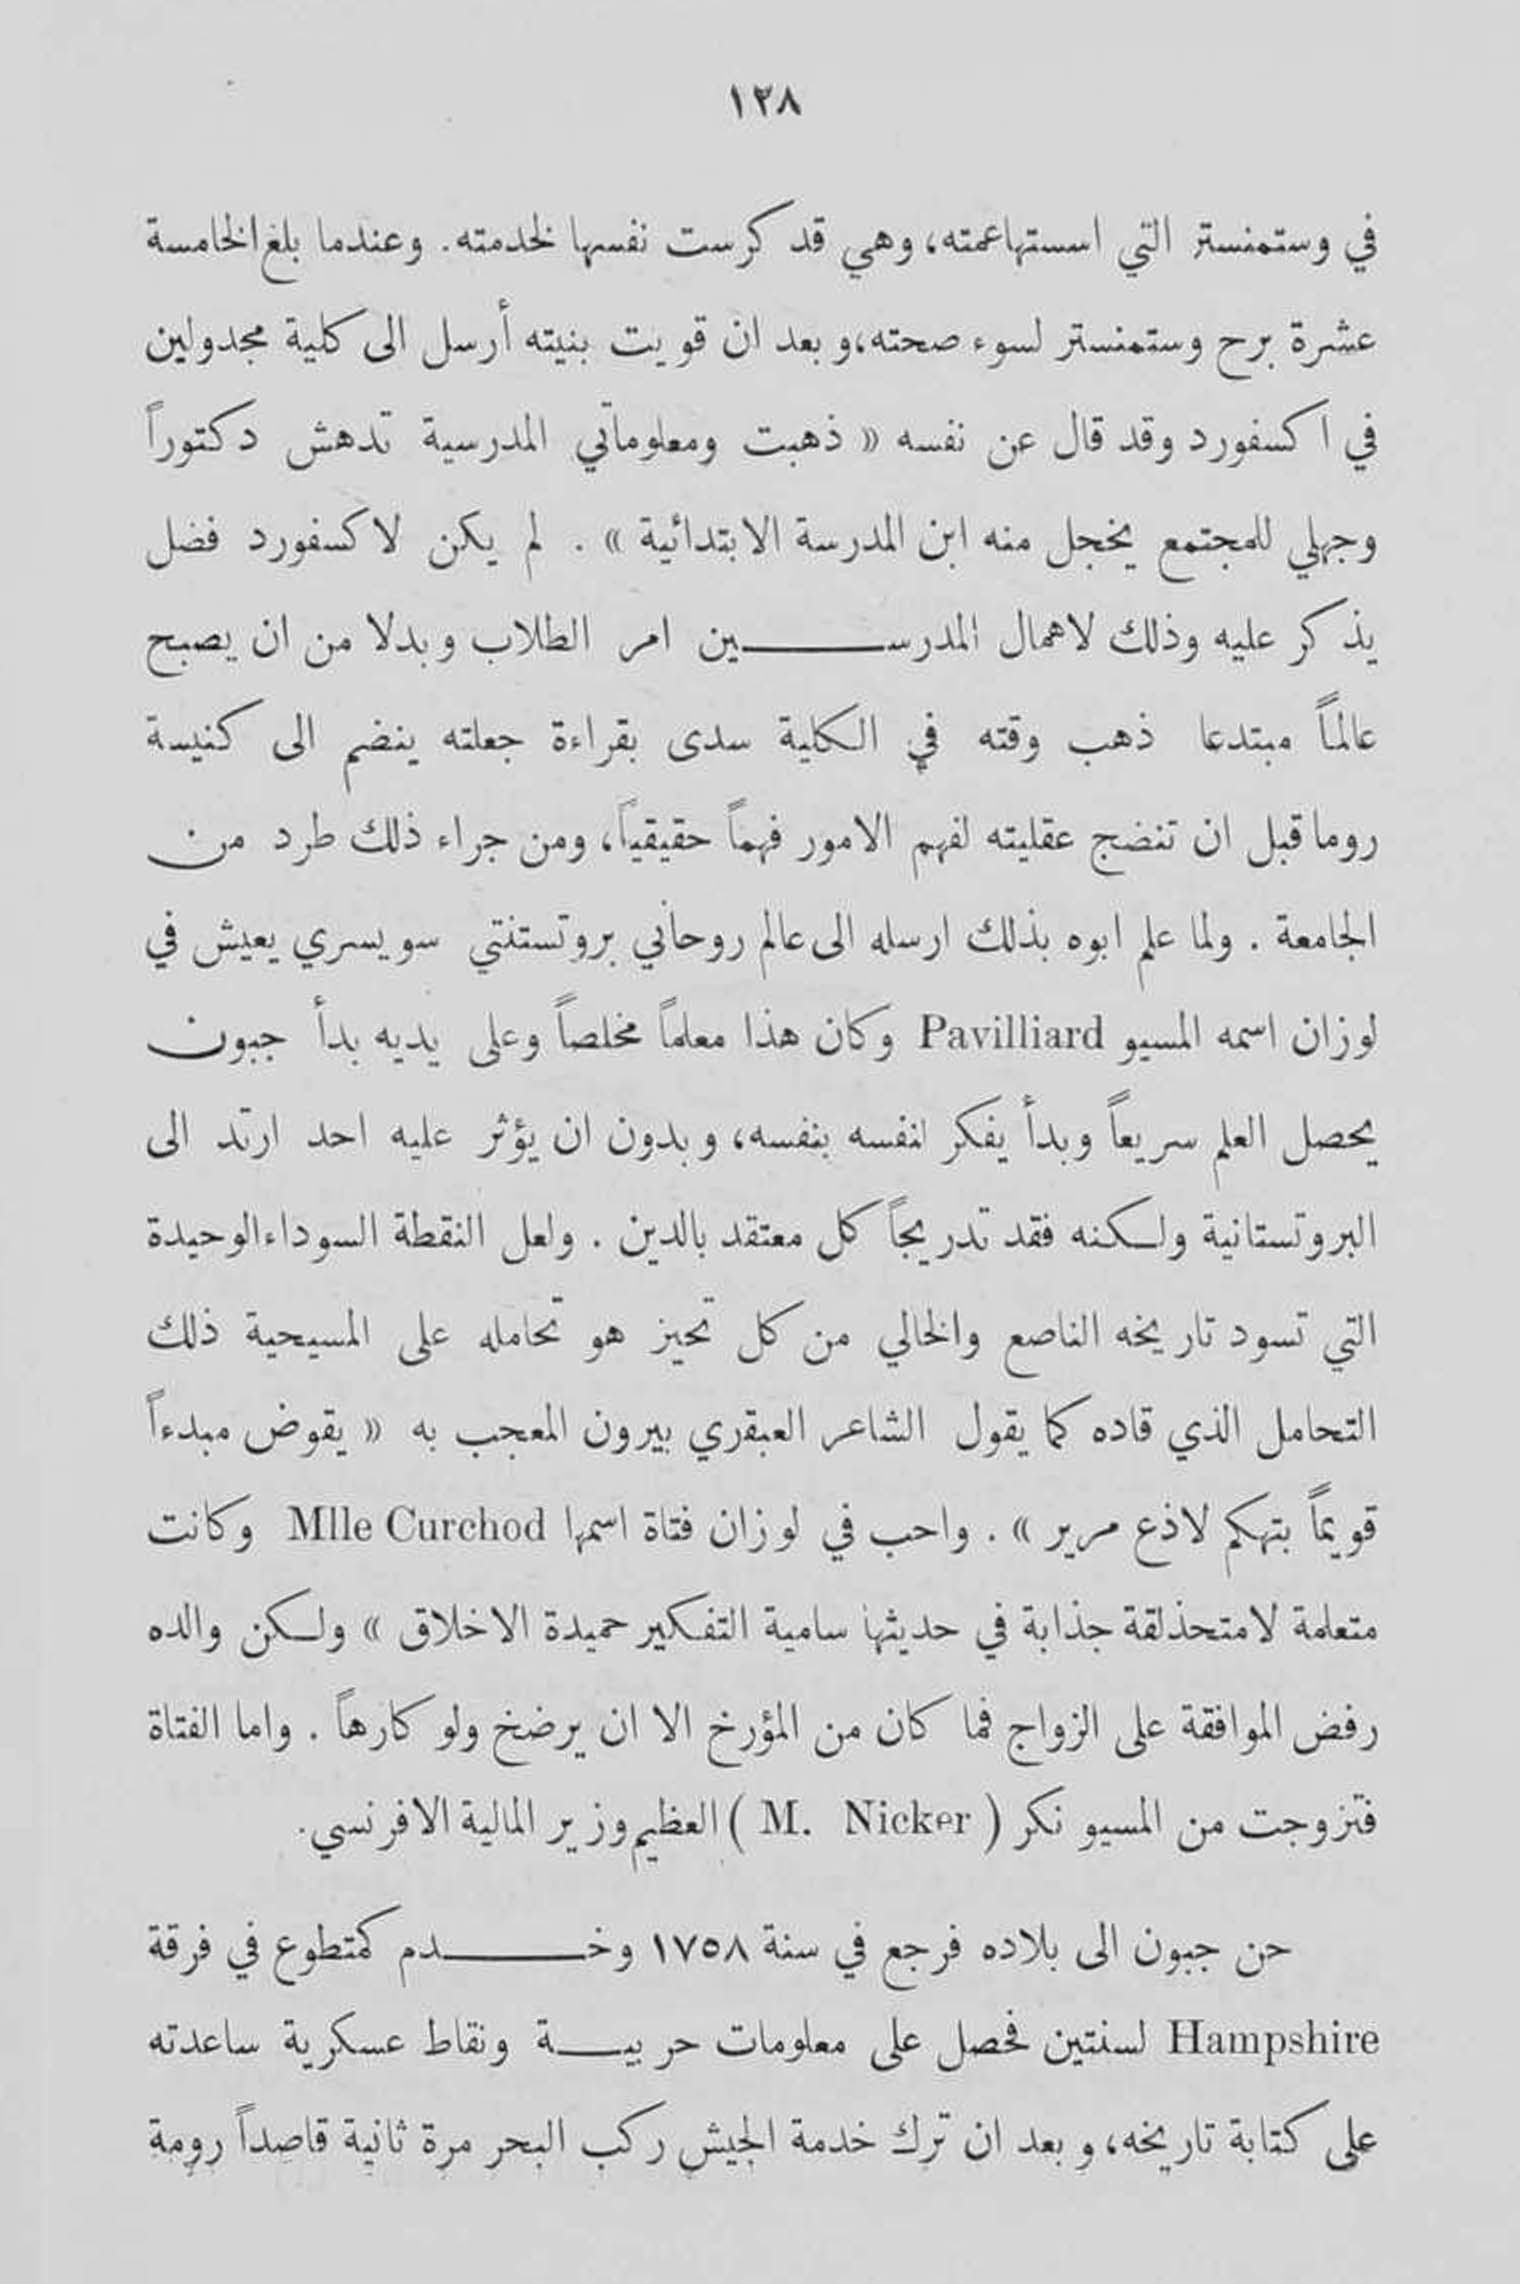 ١٢٨
في وستمنستر التي اسستها عمته، وهي قد كرست نفسها لخدمته. وعندما بلغ الخامسة
عشرة برح وستمنستر لسوء صحته، وبعد ان قويت بنيته أرسل الى كلية مجدولين
في اكسفورد وقد قال عن نفسه « ذهبت ومعلوماتي المدرسية تدهش دكتوراً
وجهلي للمجتمع يخجل منه ابن المدرسة الابتدائية » . لم يكن لاكسفورد فضل
يذكر عليه وذلك لاهمال المدرســـــين امر الطلاب وبدلا من ان يصبح
عالماً مبتدعا ذهب وقته في الكلية سدى بقراءة جعلته ينضم الى كنيسة
روما قبل ان تنضج عقليته لفهم الامور فهماً حقيقياً، ومن جراء ذلك طرد من
الجامعة . ولما علم ابوه بذلك ارسله الى عالم روحاني بروتستنتي سويسري يعيش في
لوزان اسمه المسيو Pavilliard وكان هذا معلماً مخلصاً وعلى يديه بدأ جبون
يحصل العلم سريعاً وبدأ يفكر لنفسه بنفسه، وبدون ان يؤثر عليه احد ارتد الى
البروتستانية ولـكنه فقد تدريجاً كل معتقد بالدين . ولعل النقطة السوداء الوحيدة
التي تسود تاريخه الناصع والخالي من كل تحيز هو تحامله على المسيحية ذلك
التحامل الذي قاده كما يقول الشاعر العبقري بيرون المعجب به « يقوض مبدءاً
قويماً بتهكم لاذع مرير » . واحب في لوزان فتاة اسمها Mlle Curchod وكانت
متعلمة لا متحذلقة جذابة في حديثها سامية التفكير حميدة الاخلاق » ولـكن والده
رفض الموافقة على الزواج فما كان من المؤرخ الا ان يرضخ ولو كارهاً . واما الفتاة
فتزوجت من المسيو نكر ( M. Nicker ) العظيم وزير المالية الافرنسي.
حن جبون الى بلاده فرجع في سنة ١٧٥٨ وخـــــدم كمتطوع في فرقة
Hampshire لسنتين فحصل على معلومات حربيـــة ونقاط عسكرية ساعدته
على كتابة تاريخه، وبعد ان ترك خدمة الجيش ركب البحر مرة ثانية قاصداً رومة